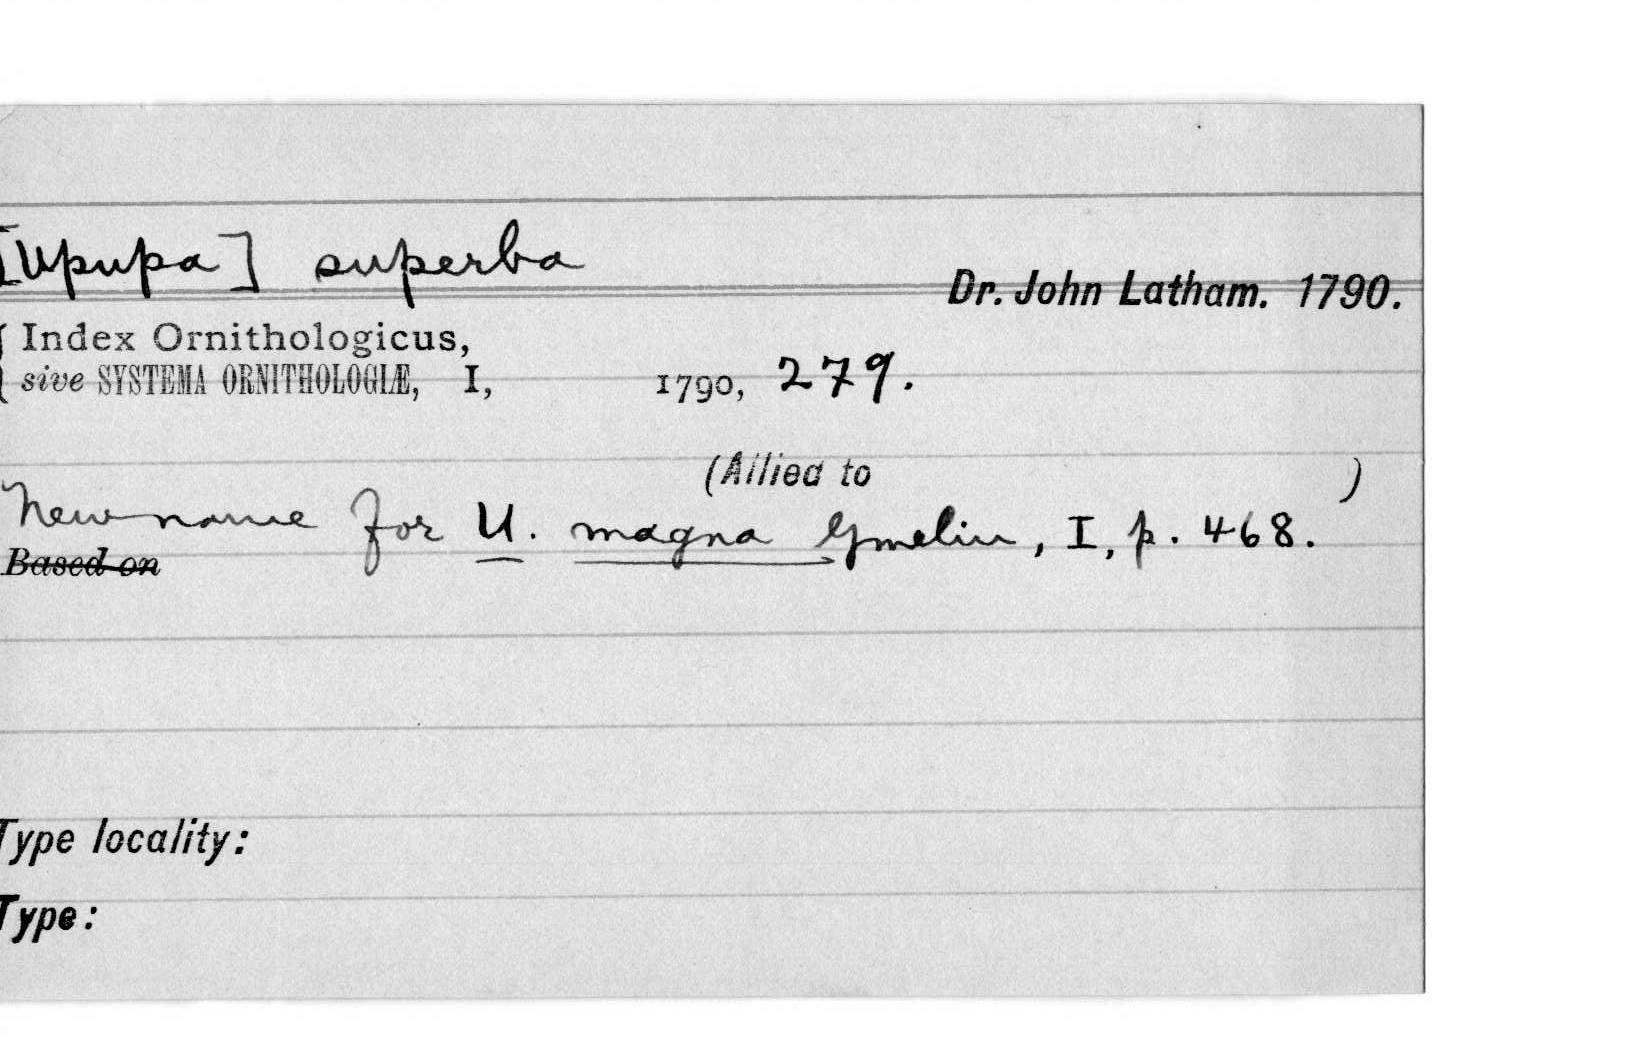 [Upupa] superba
Dr. John Latham. 1790.
Index Ornithologicus,
sive SYSTEMA ORNITHOLOGIÆ, I, 1790, 279.
(Allied to )
New name for U. magna Gmelin, I, p. 468.
Based on
Type locality:
Type: